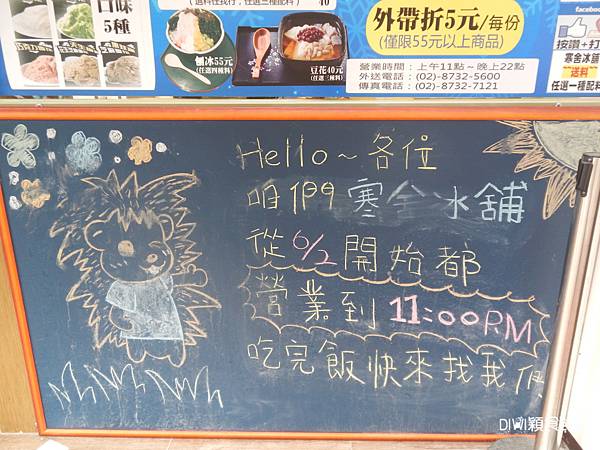 口味
5種
(任選四種料)
刨冰55元
豆花40元
(任選三種料)
40
外帶折5元/每份
(僅限55元以上商品)
營業時間：上午11點~晚上22點
外送電話：(02)-8732-5600
傳真電話：(02)-8732-7121
facebook
按讚+打
寒舍冰舖
送料
任選一種配料
Hello~各位
咱們寒舍冰舖
從6/2開始都
營業到11:00PM
吃完飯快來找我們
DIWI穎